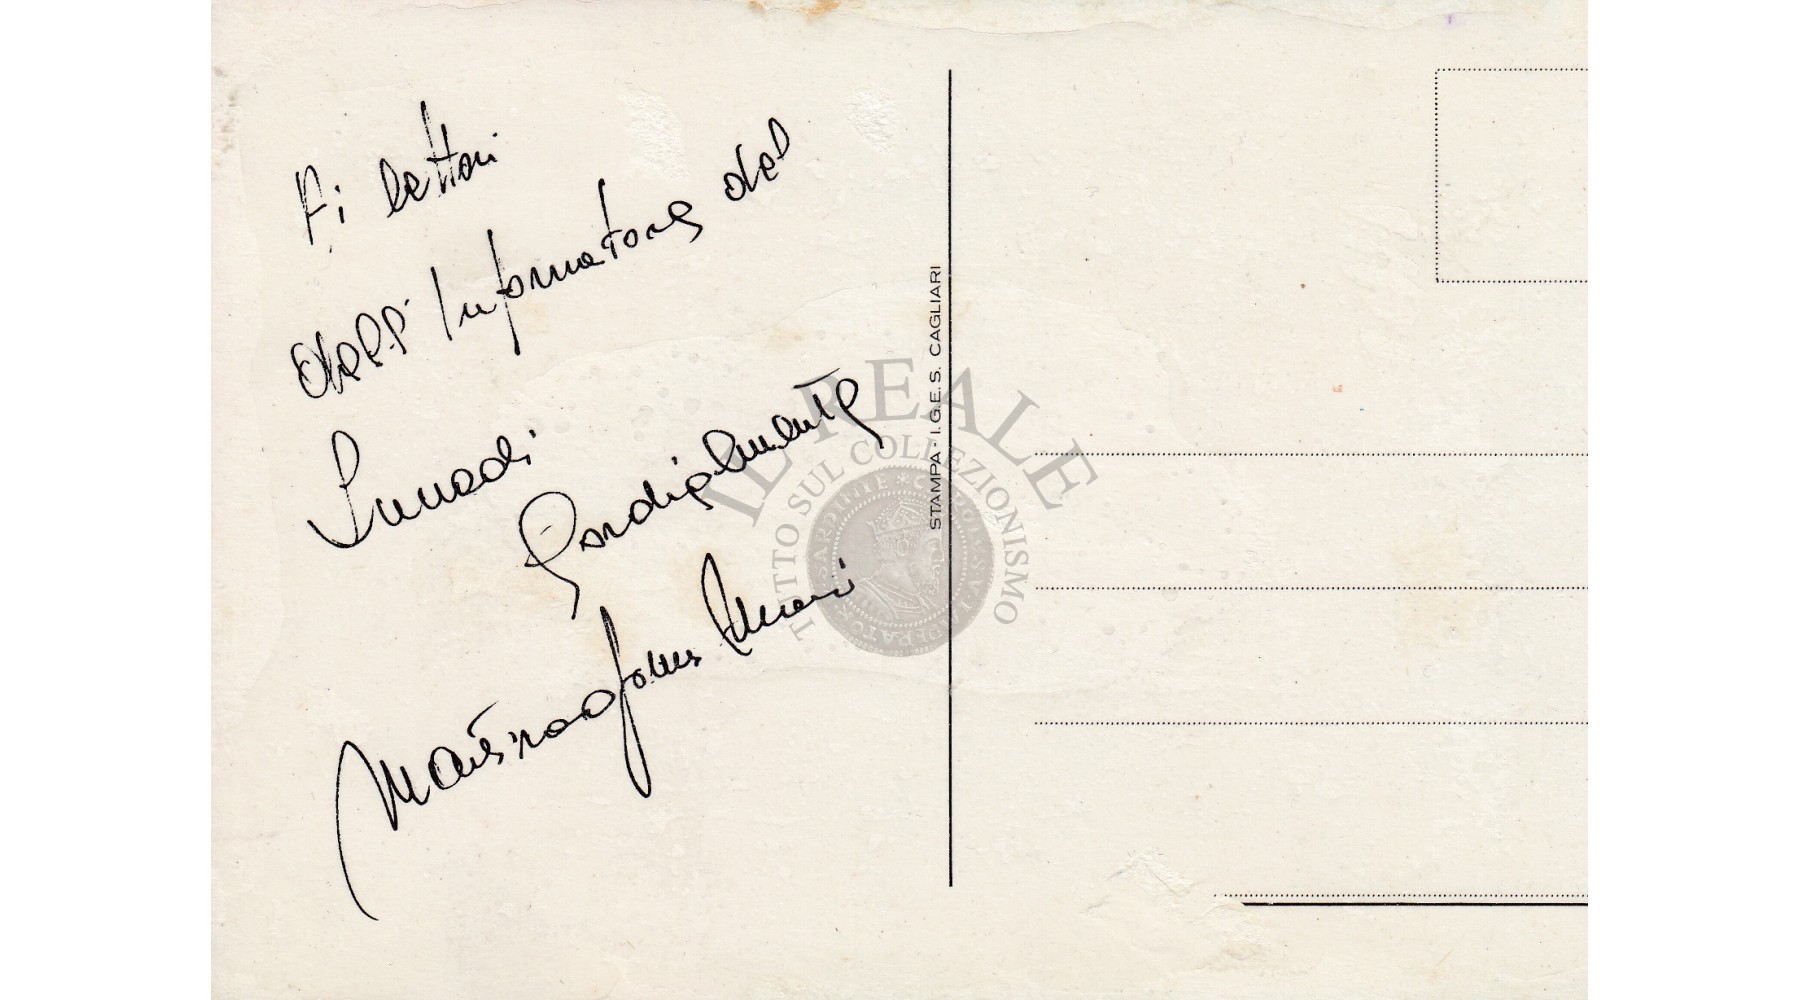 Ai lettori
dell'Informatore del
Lunedì
Cordialmente
STAMPA - I.G.E.S. CAGLIARI
IL REALE
TUTTO SUL COLLEZIONISMO